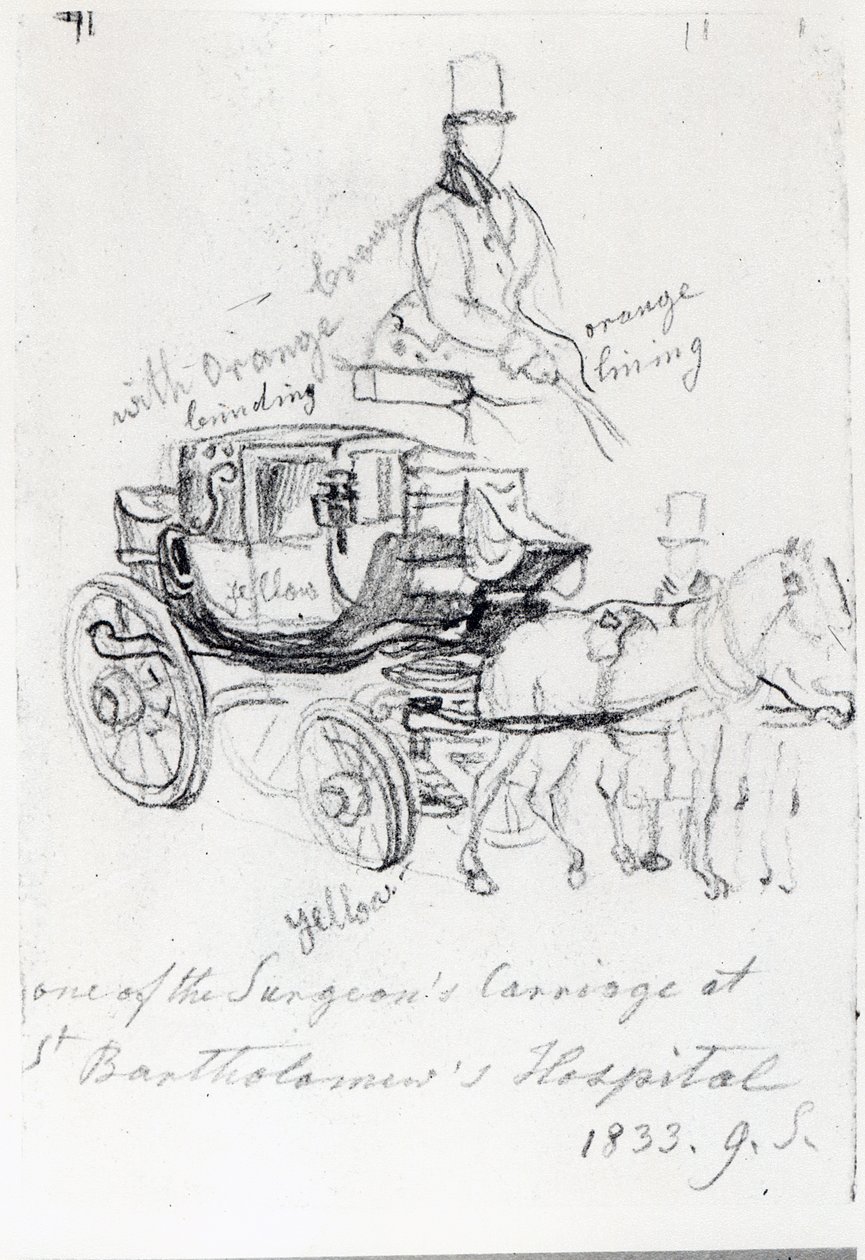 brown
with orange
binding
orange
lining
yellow
yellow
one of the Surgeon's Carriage at
St Bartholomew's Hospital
1833. G. S.